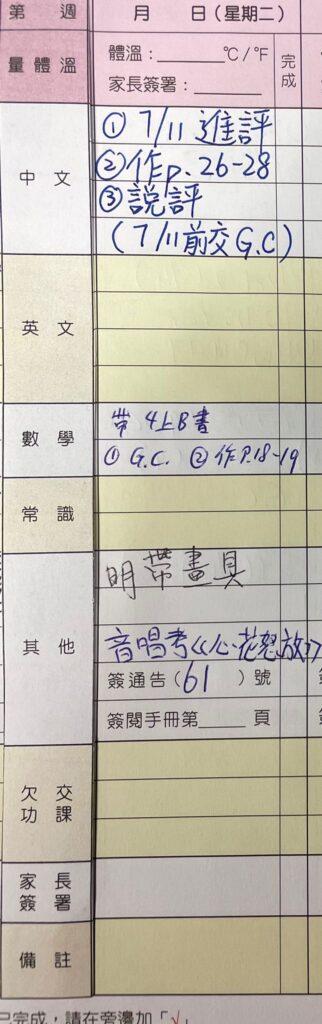 第　週　　月　　日（星期二）
量體溫
體溫：______℃/℉
家長簽署：______
完成
中文
① 7/11 進評
② 作p.26-28
③ 説評
(7/11前交G.C)
英文
數學
帶 4上B書
① G.C. ② 作P.18-19
常識
其他
明帶畫具
音唱考《心花怒放》
簽通告（61）號
簽閱手冊第____頁
欠交功課
家長簽署
備註
已完成，請在旁邊加「√」